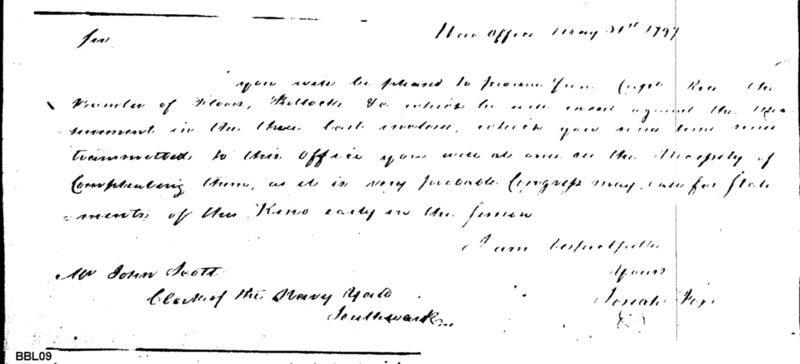 War Office May 31st 1797
Sir
you will be pleased to procure from Capt Rea the
Number of Floors, Futtocks &c which he will against the
in the three last , which you
transmitted to this Office you will at once see the Necessity of
Compleating them, as it is very probable Congress may call for State
=ments of this Kind early in the Session
I am respectfully
Yours
Mr John Scott
Josiah Fox
Clerk of the Navy Yard
Southwark
BBL09